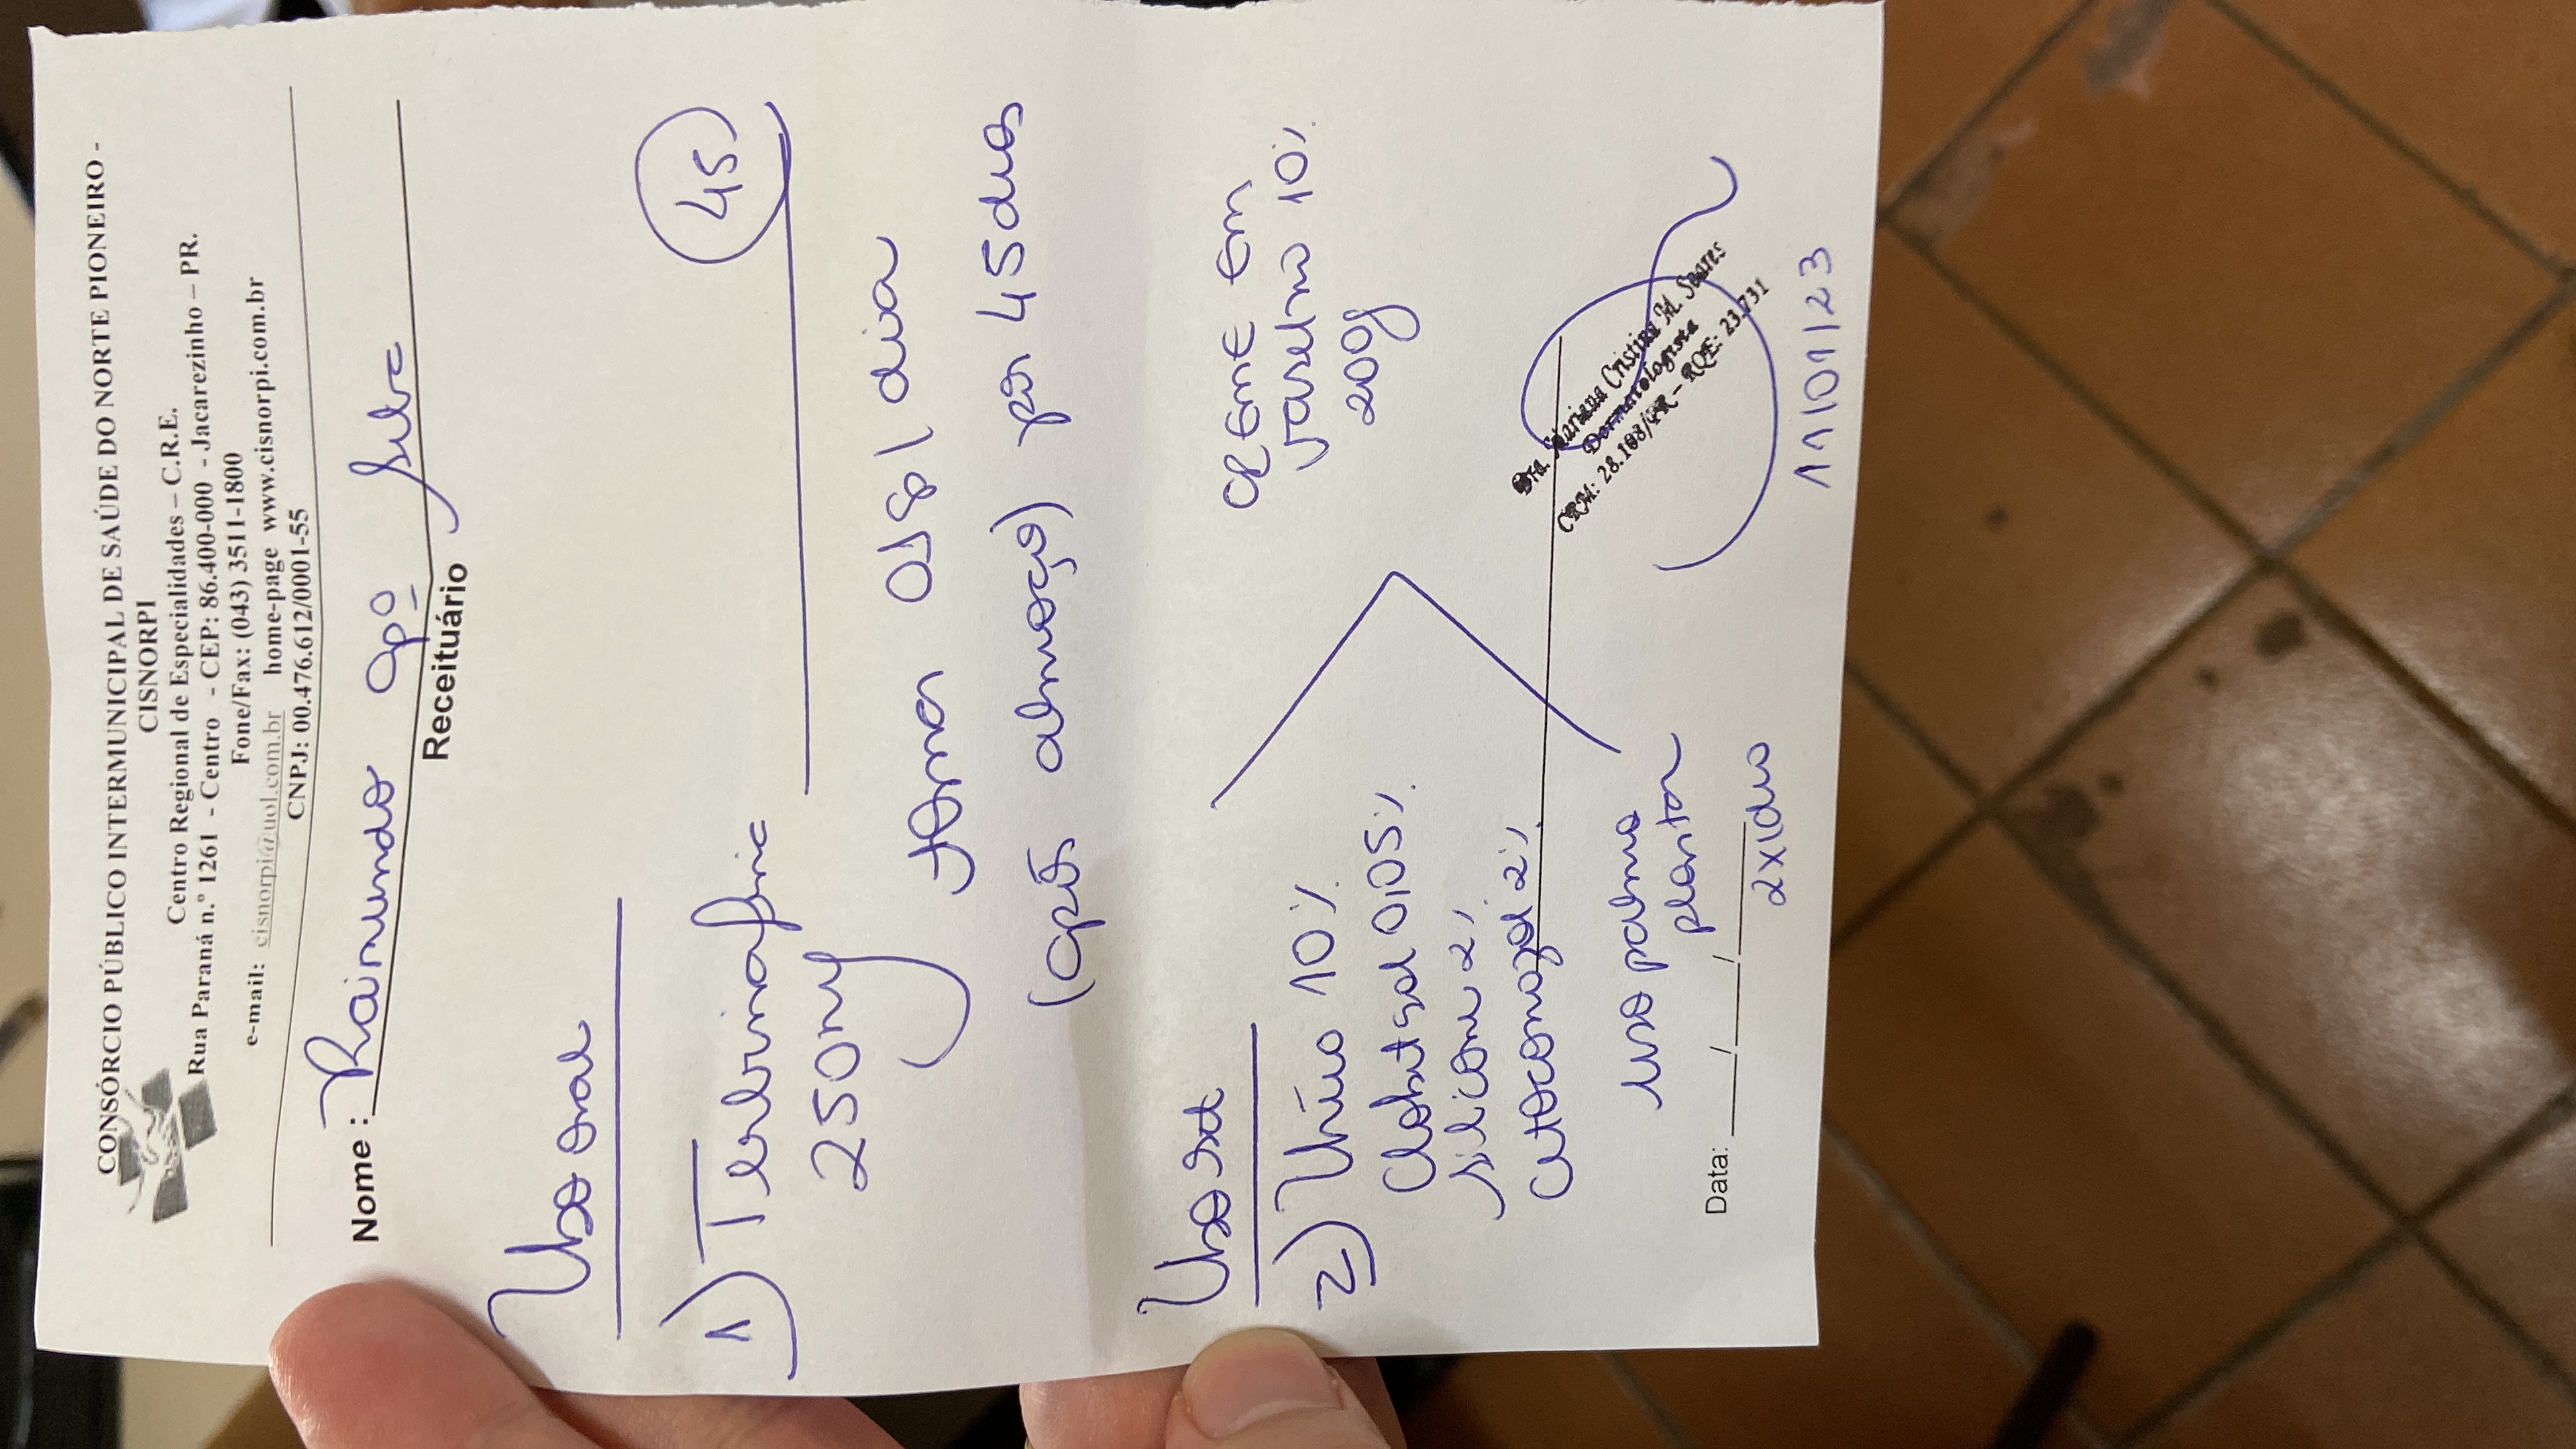 CONSÓRCIO PÚBLICO INTERMUNICIPAL DE SAÚDE DO NORTE PIONEIRO -
CISNORPI
Centro Regional de Especialidades – C.R.E.
Rua Paraná n.º 1261 - Centro - CEP: 86.400-000 - Jacarezinho – PR.
Fone/Fax: (043) 3511-1800
e-mail: cisnorpi@uol.com.br home-page www.cisnorpi.com.br
CNPJ: 00.476.612/0001-55
Nome: Raimundo Apº Silva
Receituário
Uso oral
1) Terbinafina
250mg 45
tomar 01 dia
(após almoço) por 45 dias
Uso ext
2) Uréia 10%
Clobetasol 0,05%
silicone 2%
Cetoconazol 2%
creme em
vaselina 10%
200g
uso palmo
plantar
2x/dia
Dra. Mariana Cristina M. Soares
Dermatologista
CRM: 28.108/PR – RQE: 23.731
Data: ___/___/___
11/01/23